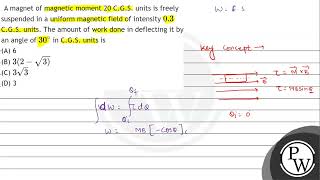 A magnet of magnetic moment 20 C.G.S. units is freely
suspended in a uniform magnetic field of intensity 0.3
C.G.S. units. The amount of work done in deflecting it by
an angle of 30° in C.G.S. units is
(A) 6
(B) 3(2 − √3)
(C) 3√3
(D) 3
W = F. S
Key Concept →
τ = M × B
τ = MB sinθ
θi = 0
∫dW = ∫τ dθ
θf
θi
W = MB [−cosθ]
PW